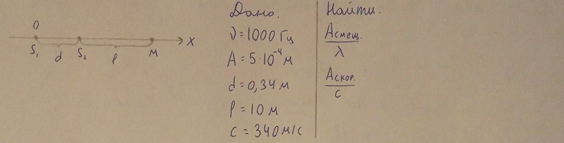 O
S₁ d S₂ ℓ M X
Дано:
ν = 1000 Гц
A = 5·10⁻⁴ м
d = 0,34 м
ℓ = 10 м
c = 340 м/с
Найти:
Aсмещ.
λ
Aскор.
c